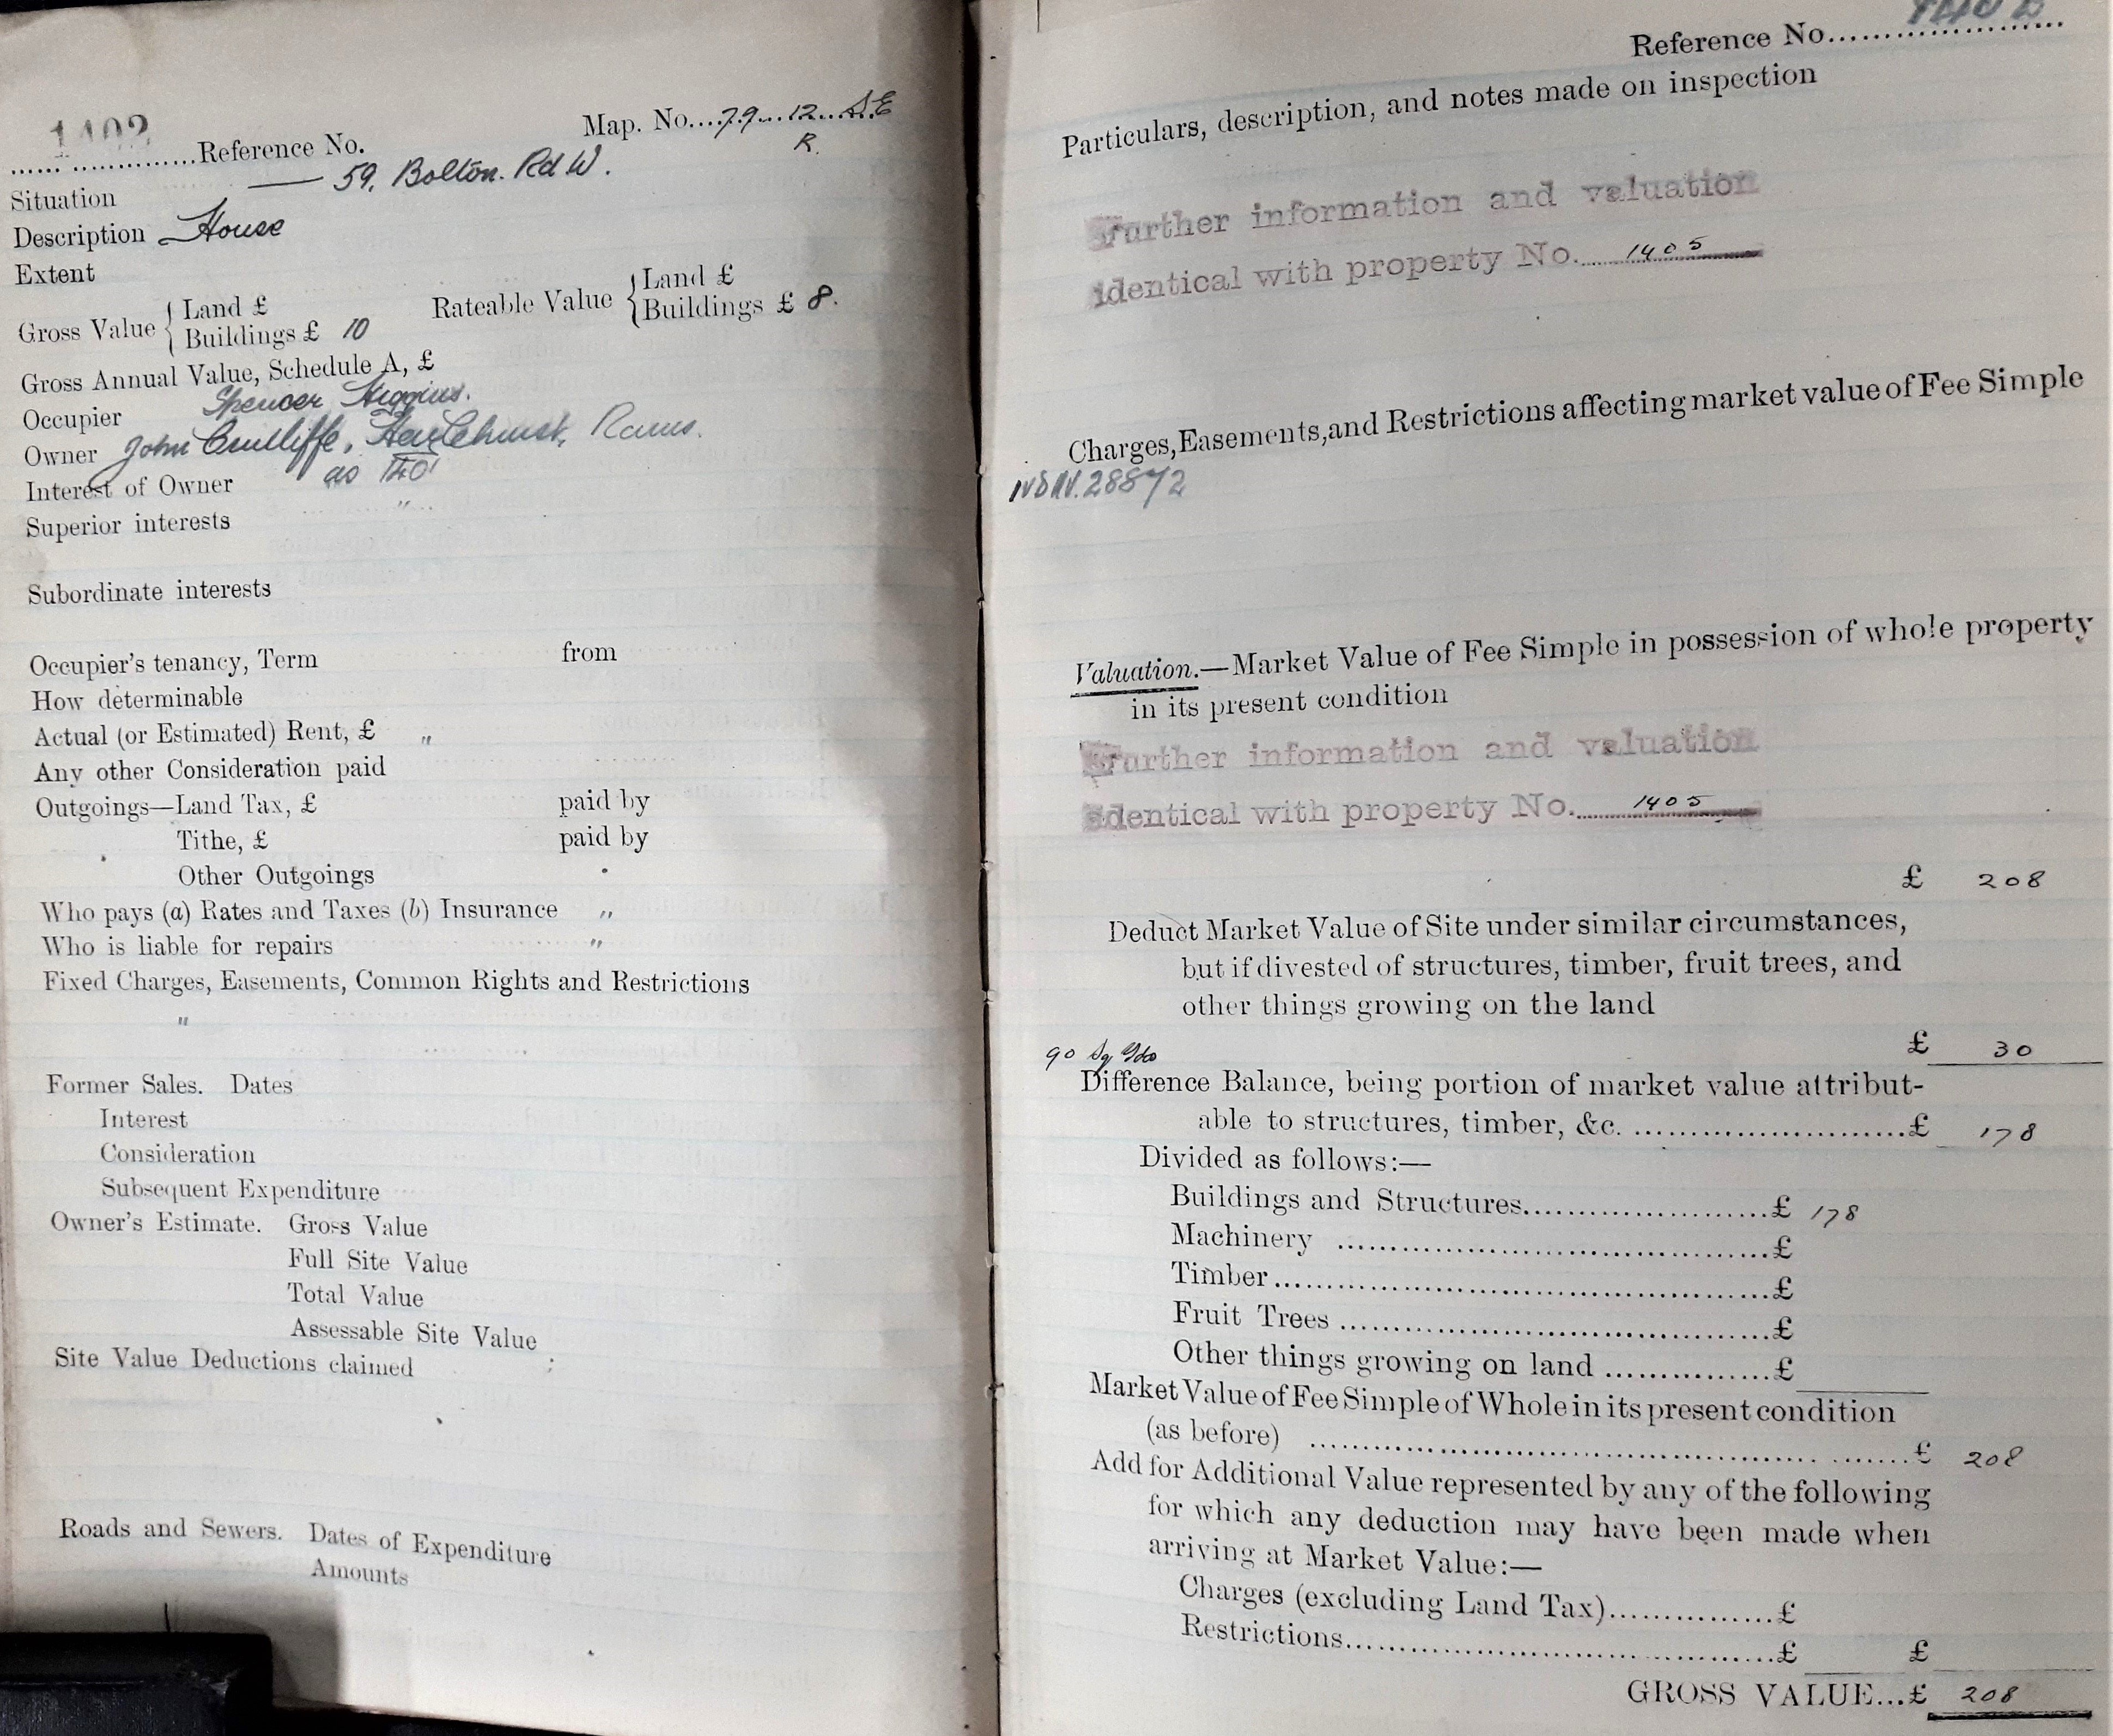 1402
.....................Reference No.
Map. No....79...12...S.E
R.
Situation — 59, Bolton. Rd W.
Description House
Extent
Gross Value { Land £
Buildings £ 10
Rateable Value { Land £
Buildings £ 8.
Gross Annual Value, Schedule A, £
Occupier Spencer Higgins.
Owner John Cunliffe, Hazlehurst, Rams.
Interest of Owner as 1401
Superior interests "
Subordinate interests
Occupier's tenancy, Term from
How determinable
Actual (or Estimated) Rent, £ "
Any other Consideration paid
Outgoings—Land Tax, £ paid by
Tithe, £ paid by
Other Outgoings
Who pays (a) Rates and Taxes (b) Insurance "
Who is liable for repairs "
Fixed Charges, Easements, Common Rights and Restrictions
"
Former Sales. Dates
Interest
Consideration
Subsequent Expenditure
Owner's Estimate. Gross Value
Full Site Value
Total Value
Assessable Site Value
Site Value Deductions claimed
Roads and Sewers. Dates of Expenditure
Amounts
Reference No.....................
Particulars, description, and notes made on inspection
Further information and valuation
identical with property No. 1405
Charges, Easements, and Restrictions affecting market value of Fee Simple
28872
Valuation.—Market Value of Fee Simple in possession of whole property
in its present condition
Further information and valuation
identical with property No. 1405
£ 208
Deduct Market Value of Site under similar circumstances,
but if divested of structures, timber, fruit trees, and
other things growing on the land
£ 30
90 Sq Yds
Difference Balance, being portion of market value attribut-
able to structures, timber, &c. ..............................£ 178
Divided as follows:—
Buildings and Structures..........................£ 178
Machinery ..............................................£
Timber.....................................................£
Fruit Trees ..............................................£
Other things growing on land ................£
Market Value of Fee Simple of Whole in its present condition
(as before) ..............................................£ 208
Add for Additional Value represented by any of the following
for which any deduction may have been made when
arriving at Market Value:—
Charges (excluding Land Tax)................£
Restrictions..............................................£ £
GROSS VALUE...£ 208